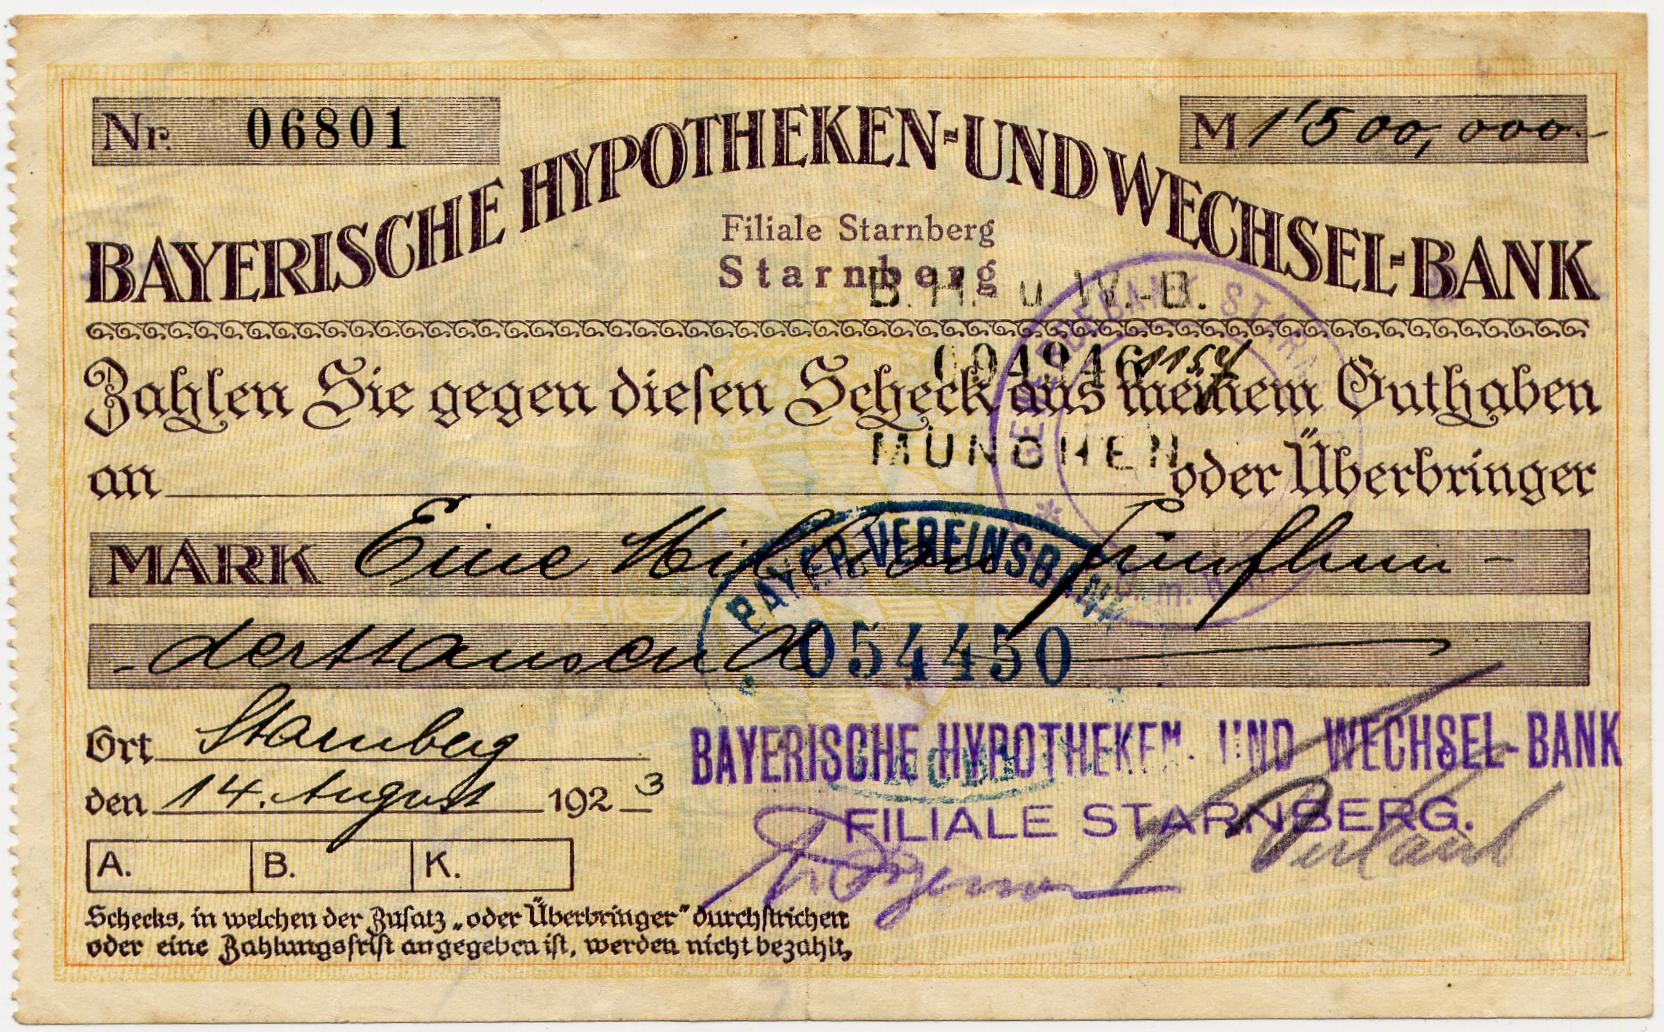 Nr. 06801
M 1'500,000.-
BAYERISCHE HYPOTHEKEN-UND WECHSEL-BANK
Filiale Starnberg
Starnberg
B. H. u. W.-B.
Zahlen Sie gegen diesen Scheck aus meinem Guthaben
MÜNCHEN
an oder Überbringer
BAYER. VEREINSBANK
MARK Eine Million fünfhun-
-derttausend
054450
Ort Starnberg
den 14. August 1923
BAYERISCHE HYPOTHEKEN- UND WECHSEL-BANK
FILIALE STARNBERG.
A. B. K.
Schecks, in welchen der Zusatz „oder Überbringer" durchstrichen
oder eine Zahlungsfrist angegeben ist, werden nicht bezahlt.